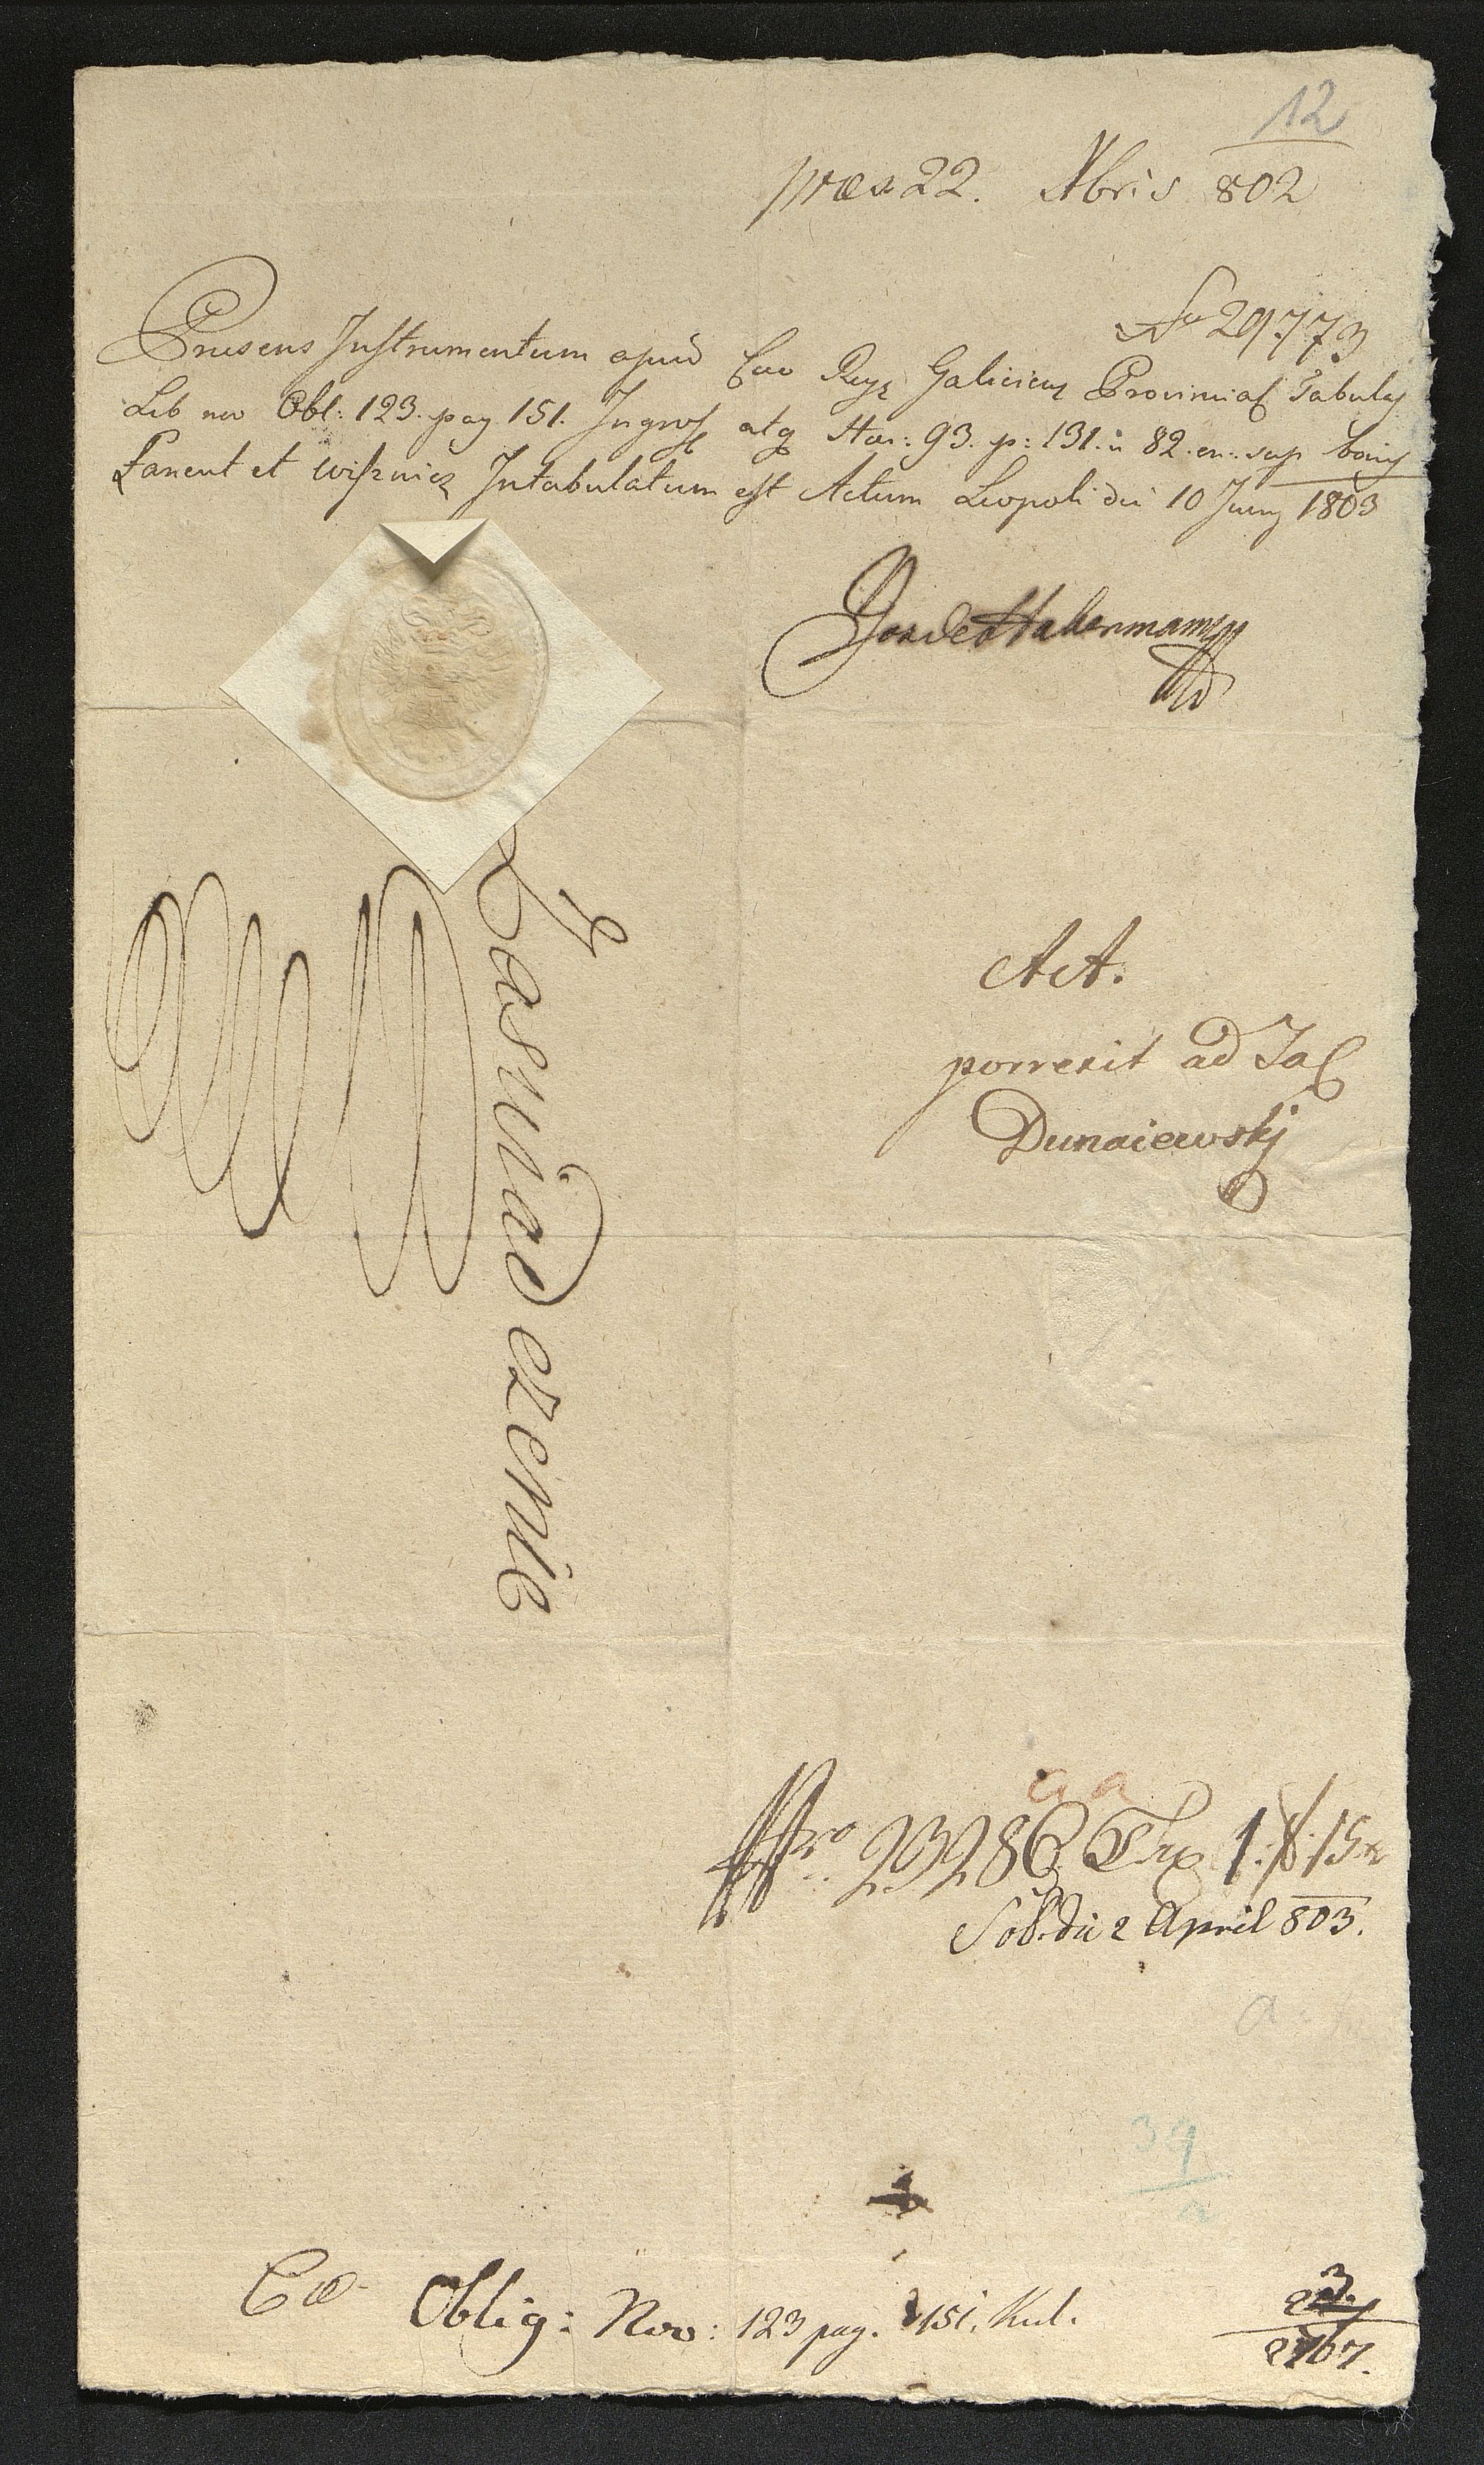 12
præs 22. Xbris 802
No 29773
Præsens Instrumentum apud Cæo Reg Galicien Provincial Tabulam
Lib nov Obl: 123. pag 151. Ingross atq Hær: 93. p: 131. n 82. on. sup bonis
Łancut et Wiśznicz Intabulatum est Actum Leopoli die 10 Juny 1803
Habermann
Zaswiadczenie
ActA.
porrexit ad Tab
Dunaiewskj
Nro 23286 Tax 1 f 15 x
Sol. die 2 April 803.
39
Oblig: Nov: 123 pag. 151. Kul.
2767.